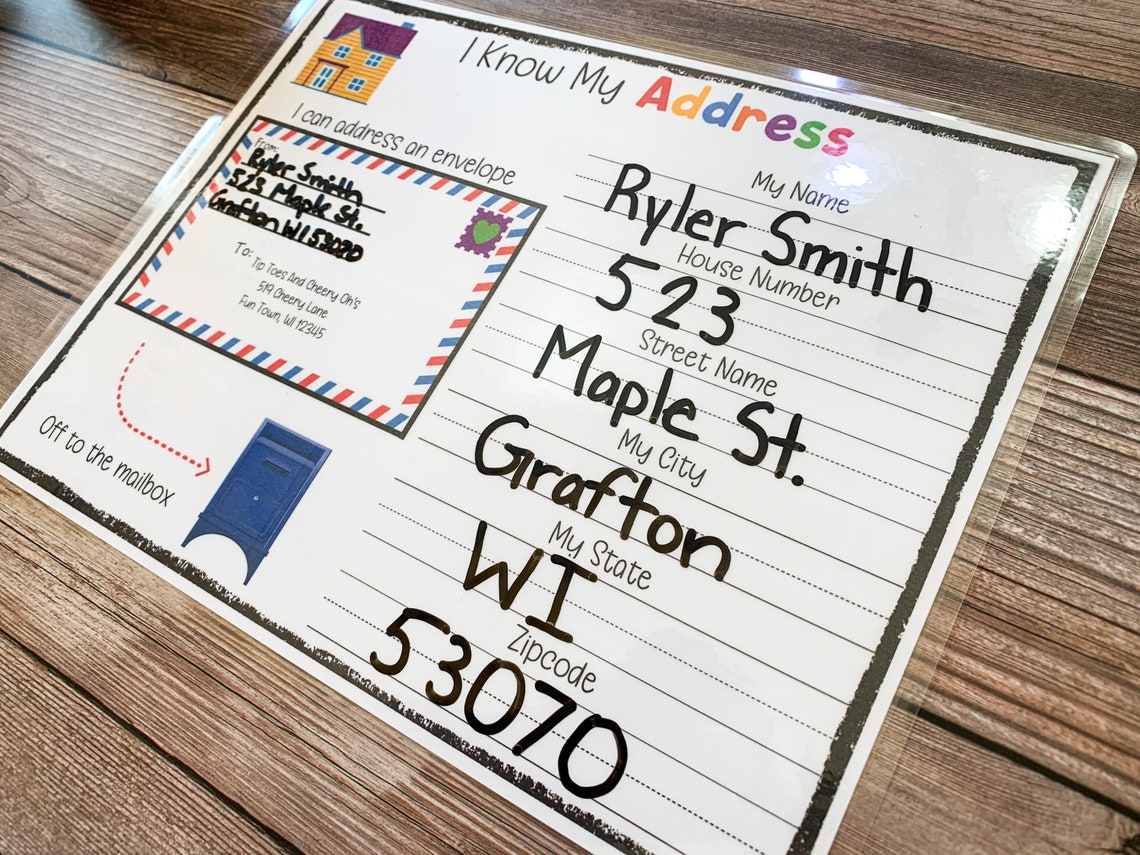 I Know My Address
I can address an envelope
From:
Ryler Smith
523 Maple St.
Grafton WI 53020
To: Tip Toes And Cheery Oh's
519 Cheery Lane
Fun Town, WI 12345
Off to the mailbox
My Name
Ryler Smith
House Number
523
Street Name
Maple St.
My City
Grafton
My State
WI
Zipcode
53070